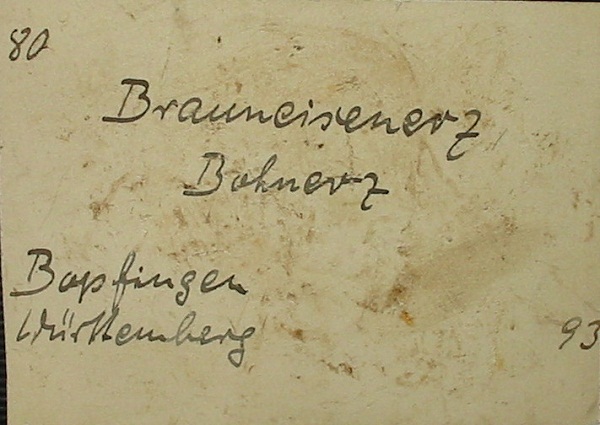 80
Brauneisenerz
Bohnerz
Bopfingen
Württemberg
93